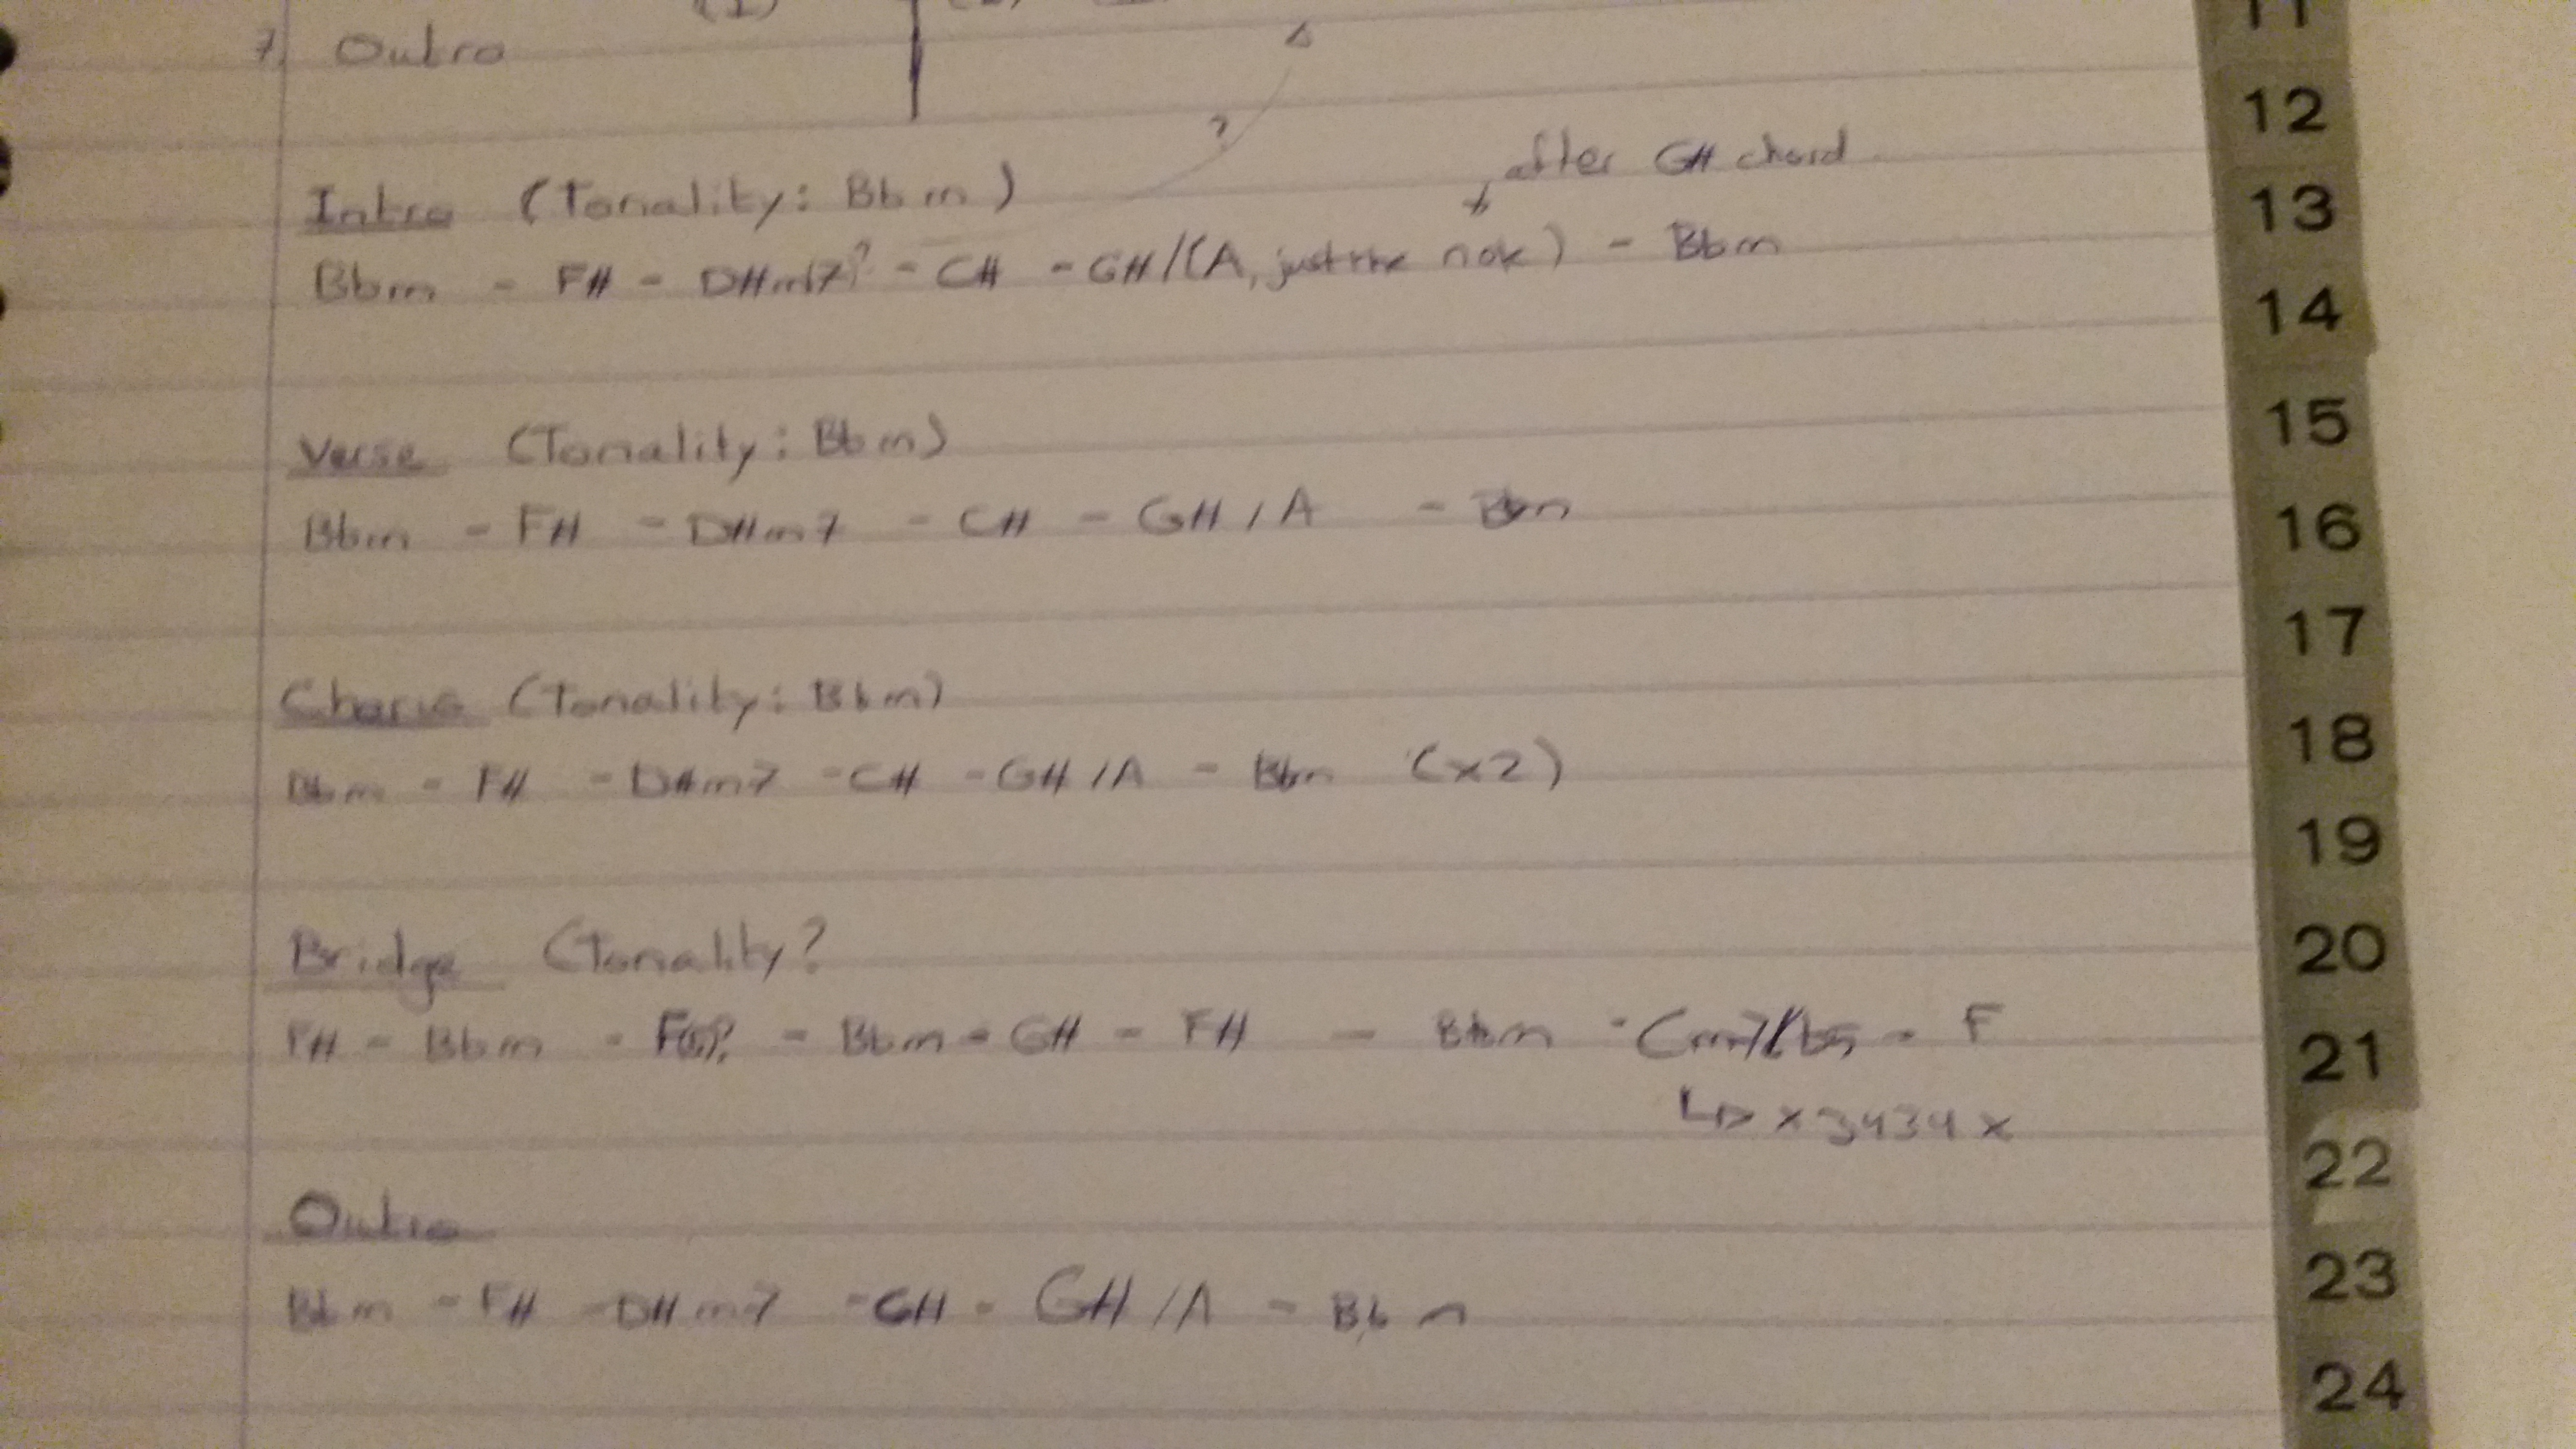 (1)
7. Outro
11
12
?
after G# chord
13
Intro (Tonality: Bbm)
Bbm - F# - D#m7? - C# - G#/(A, just the note) - Bbm
14
15
Verse (Tonality: Bbm)
Bbm - F# - D#m7 - C# - G# / A - Bbm
16
17
Chorus (Tonality: Bbm)
18
Bbm - F# - D#m7 - C# - G# / A - Bbm (x2)
19
Bridge (Tonality?
20
F# - Bbm - - Bbm - G# - F# - Bbm - Cm7/b5 - F
21
x3434x
22
Outro
23
Bbm - F# - D#m7 - C# - G# / A - Bbm
24